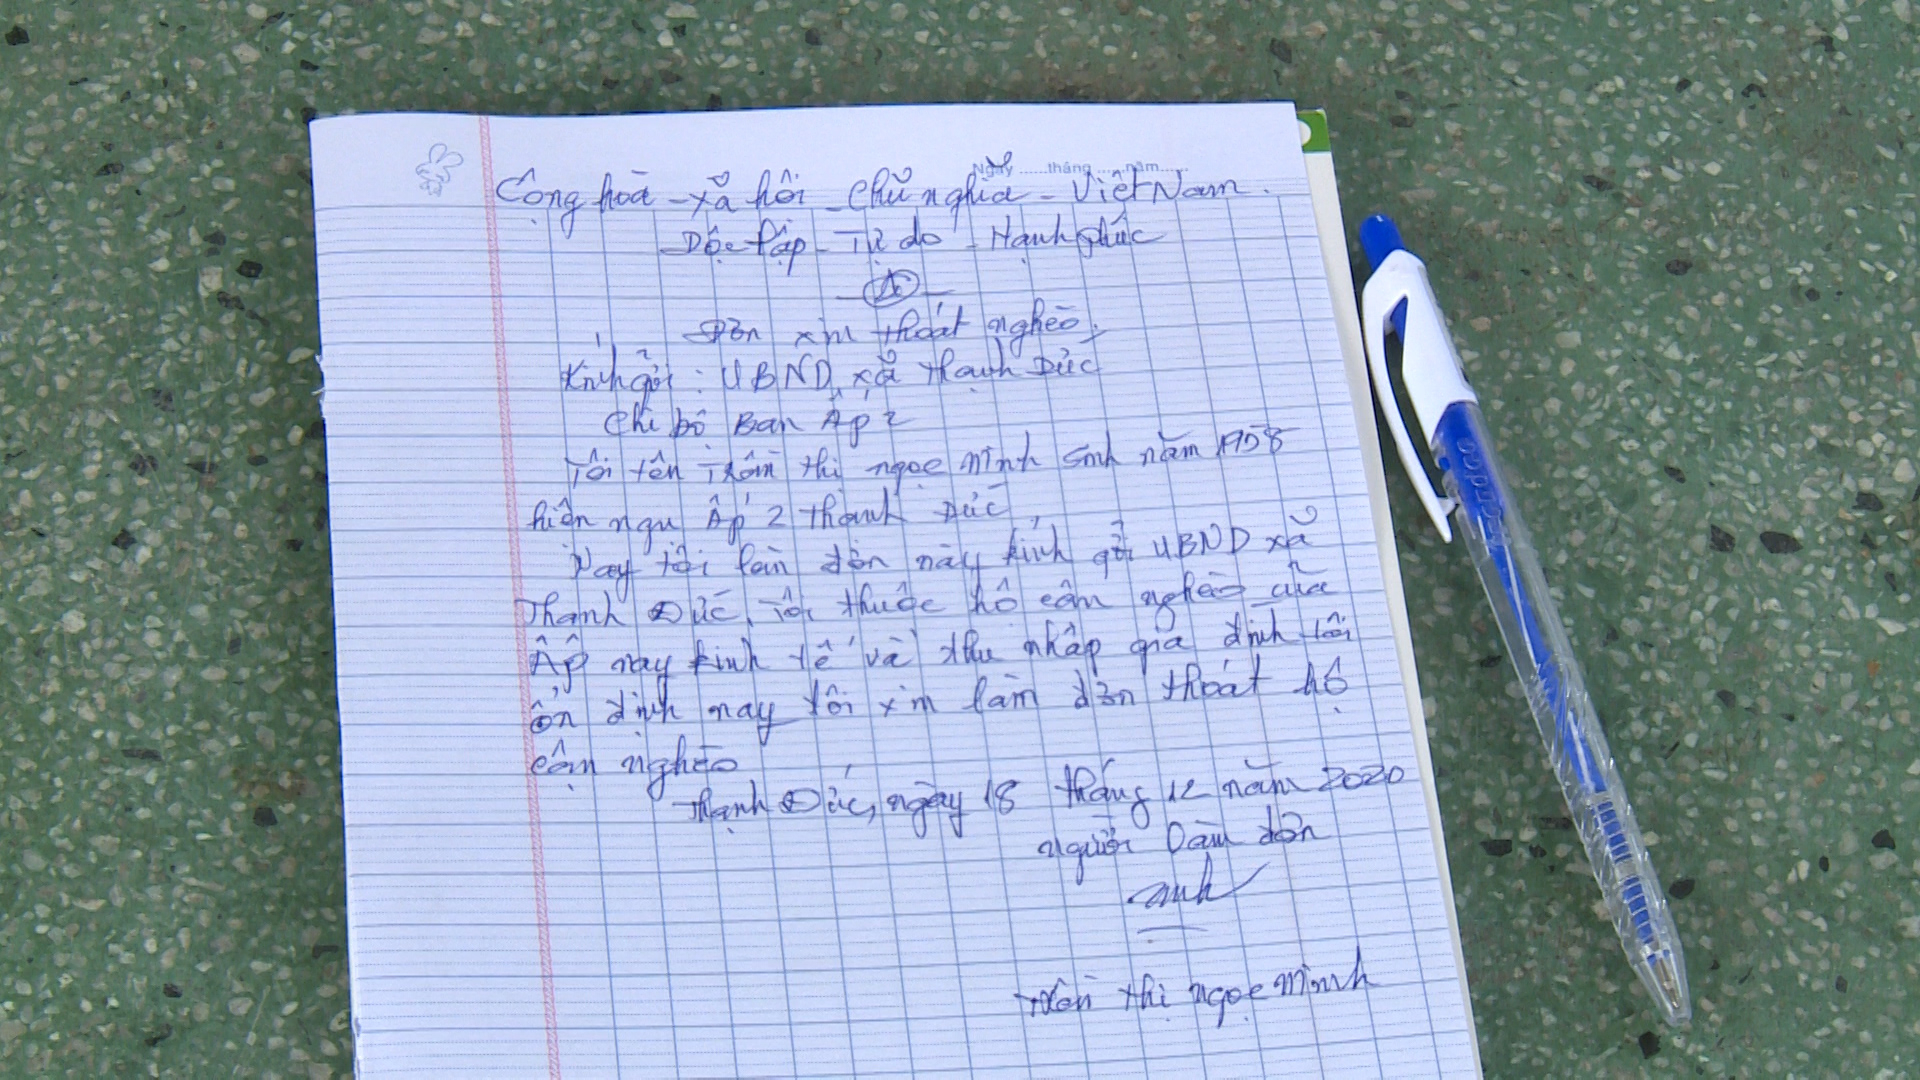 Ngày ......tháng ......năm......
Cộng hoà - xã hôi - chũ nghĩa - Việt Nam.
Độc lập - Tự do - Hạnh phúc
Đơn xin thoát nghèo.
Kính gởi : UBND xã Thạnh Đức
Chi bộ Ban Ấp 2
Tôi tên Trần thị ngọc Minh sinh năm 1958
hiện ngụ Ấp 2 Thạnh Đức
Nay tôi làm đơn này kính gởi UBND xã
Thạnh Đức, Tôi thuộc hộ cận nghèo của
Ấp nay kinh tế và thu nhập gia đình tôi
ổn định nay tôi xin làm đơn thoát hộ
cận nghèo
Thạnh Đức, ngày 18 tháng 12 năm 2020
người làm đơn
Trần thị ngọc Minh